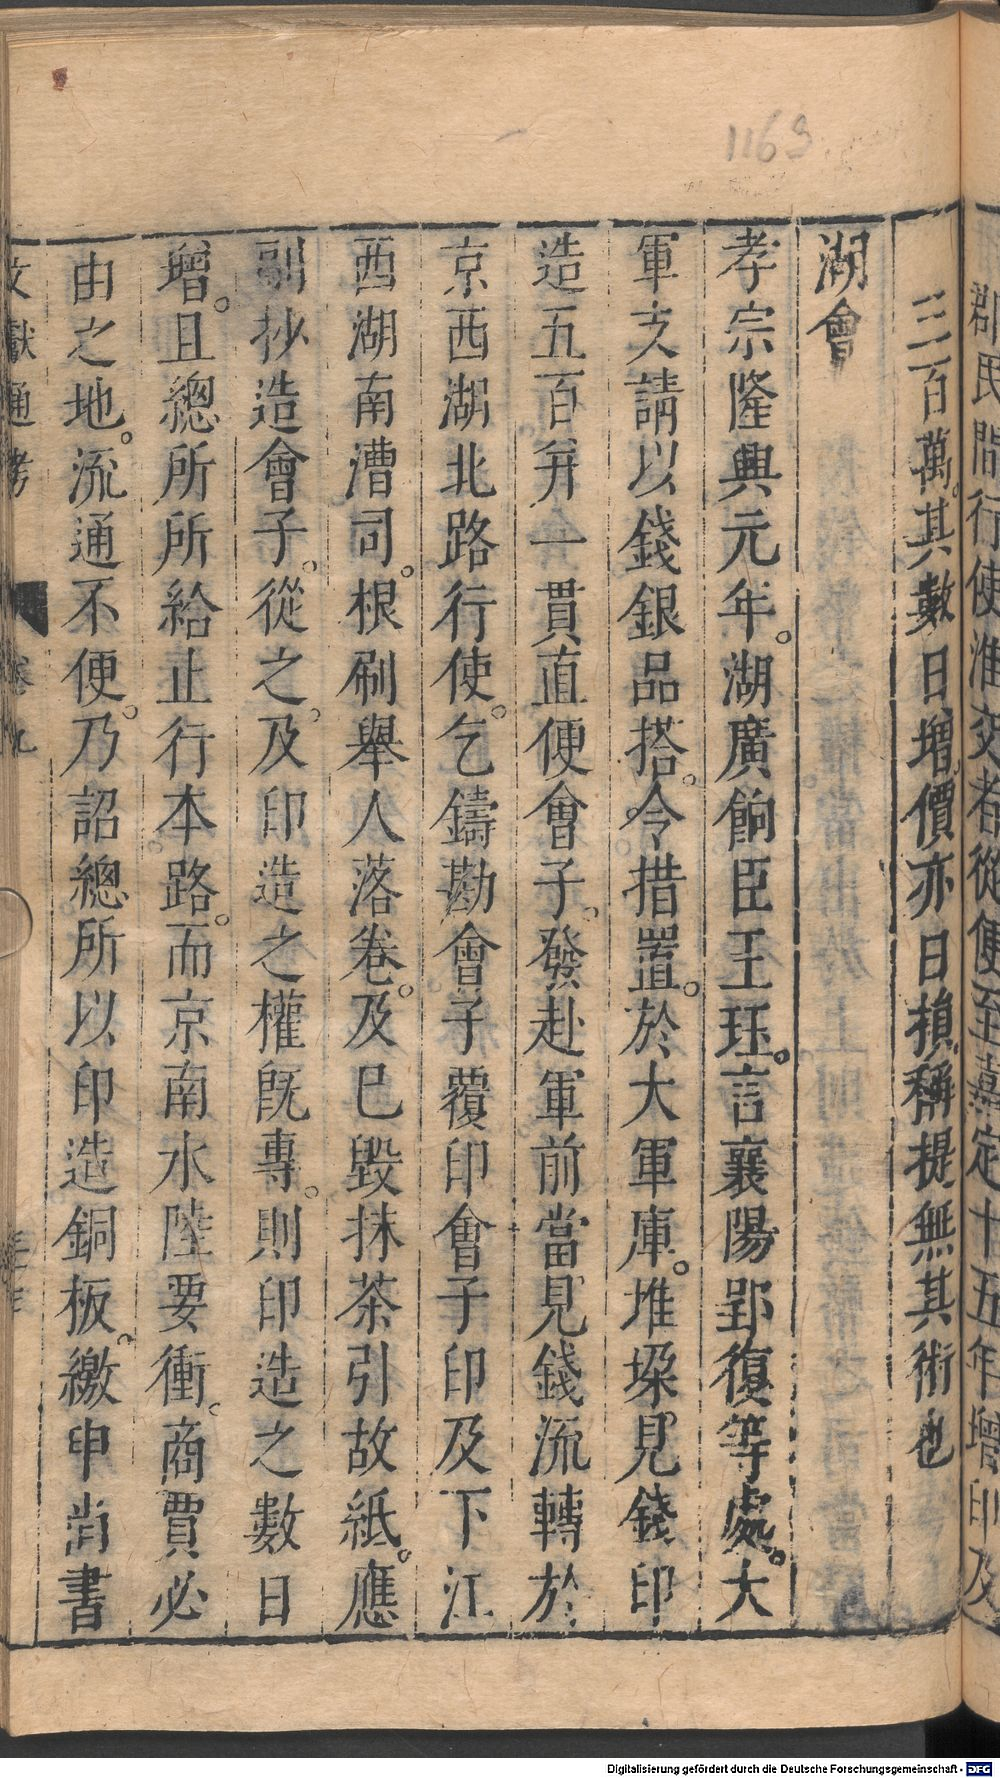 1169
郡民間行使淮交者從便至嘉定十五年增印及
三百萬其數日增價亦日損稱提無其術也
湖會
孝宗隆興元年。湖廣餉臣王珏。言襄陽郢復等處。大
軍支請以錢銀品搭。令措置。於大軍庫。堆垛見錢印
造五百并一貫直便會子。發赴軍前當見錢流轉於
京西湖北路行使。乞鑄勘會子覆印會子印及下江
西湖南漕司。根刷舉人落卷。及已毀抹茶引故紙。應
副抄造會子。從之。及印造之權既專。則印造之數日
增。且總所所給止行本路。而京南水陸要衝。商賈必
由之地。流通不便。乃詔總所以印造銅板。繳申尚書
文獻通考 卷九
Digitalisierung gefördert durch die Deutsche Forschungsgemeinschaft - DFG